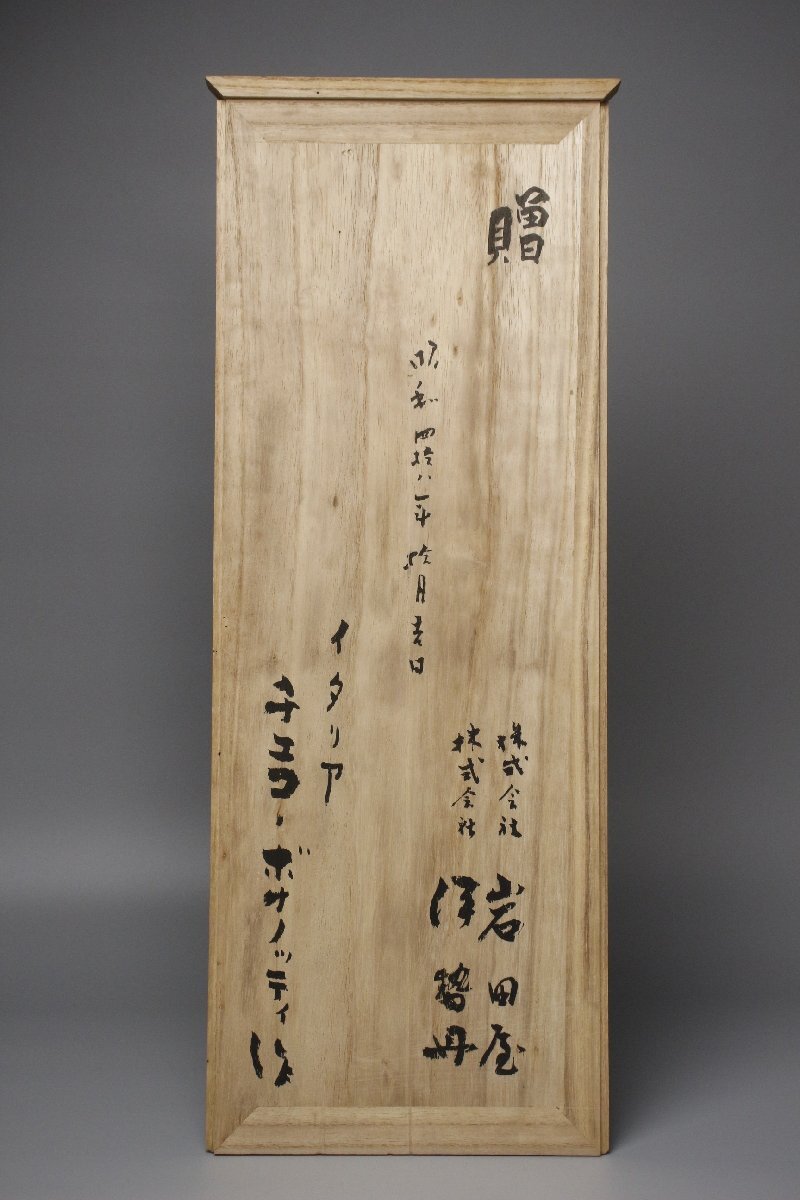 贈
昭和四拾八年拾月吉日
株式会社 岩田屋
株式会社 伊勢丹
イタリア
チェコ・ボナノッティ作